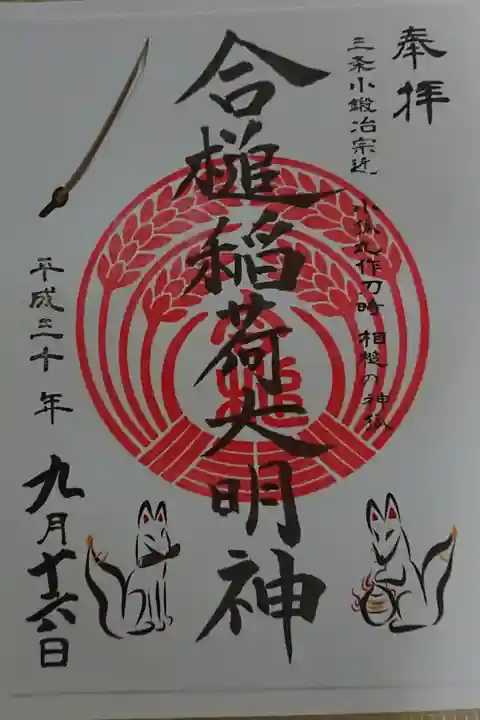 奉拝
三条小鍛冶宗近
小狐丸作刀時 相槌の神狐
合槌稲荷大明神
合槌
平成三十年
九月十六日